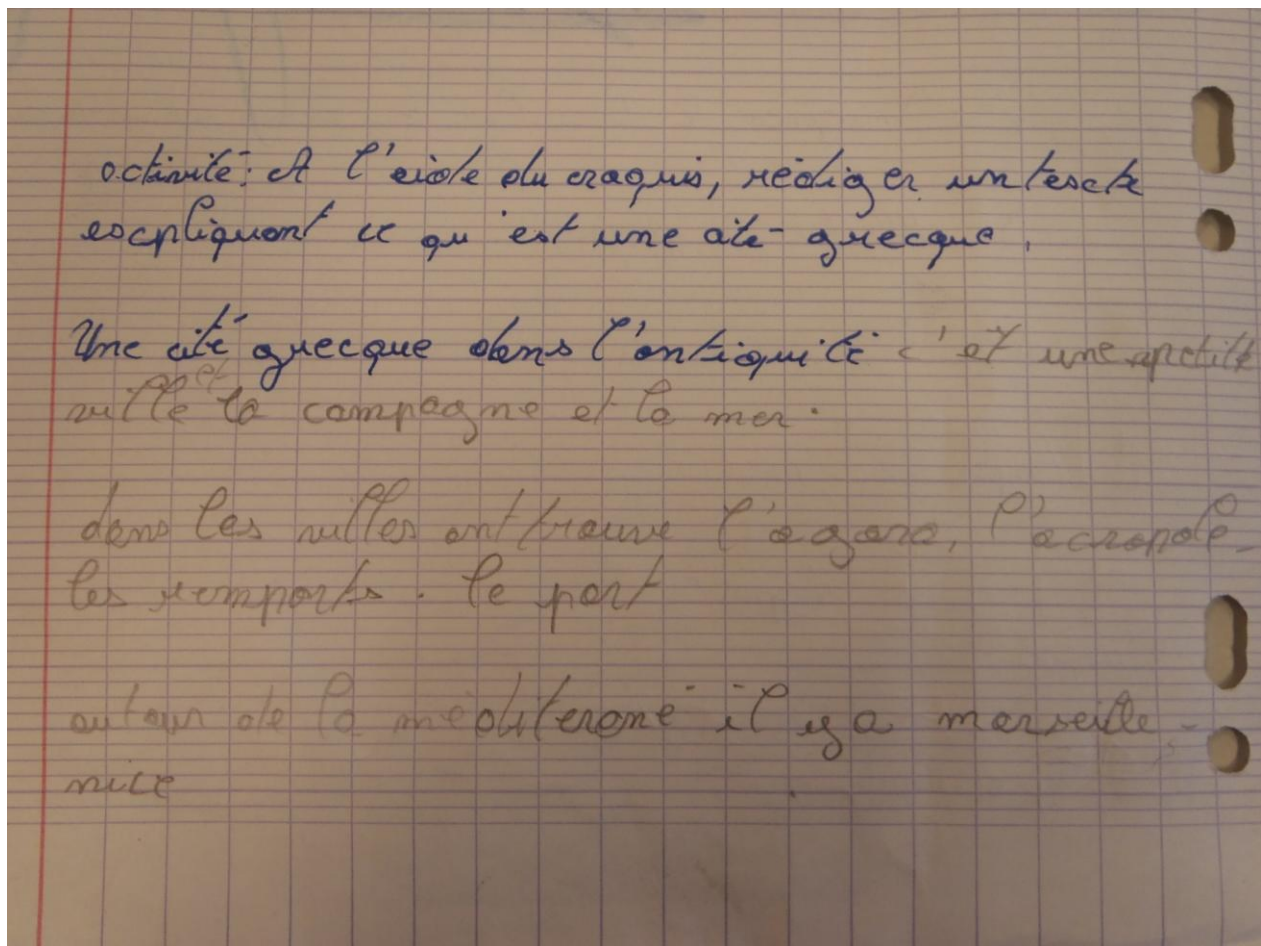 activité : A l'aide du craquis, rédiger un texte
expliquant ce qu'est une cité grecque.
Une cité grecque dans l'antiquité c'et une petite
ville et la campagne et la mer.
dans les villes ont trouve l'agora, l'acropole
les remparts. le port
autour de la méditerané il y a marseille,
nice